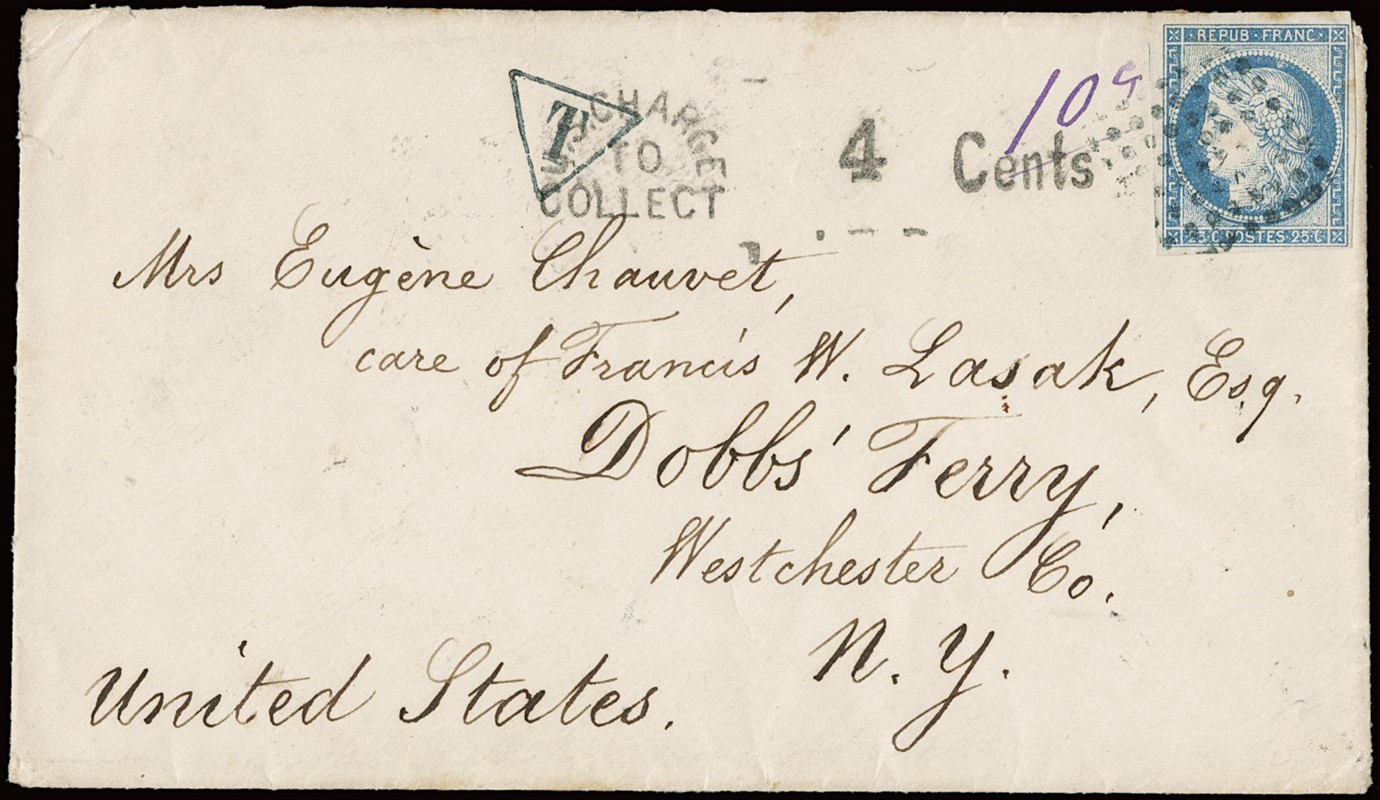 REPUB · FRANC ·
10
T
U.S. CHARGE
TO
COLLECT
4 Cents
25 C. POSTES 25 C.
Mrs Eugène Chauvet,
care of Francis W. Lasak, Esq.
Dobbs' Ferry,
Westchester Co.
N. Y.
United States.